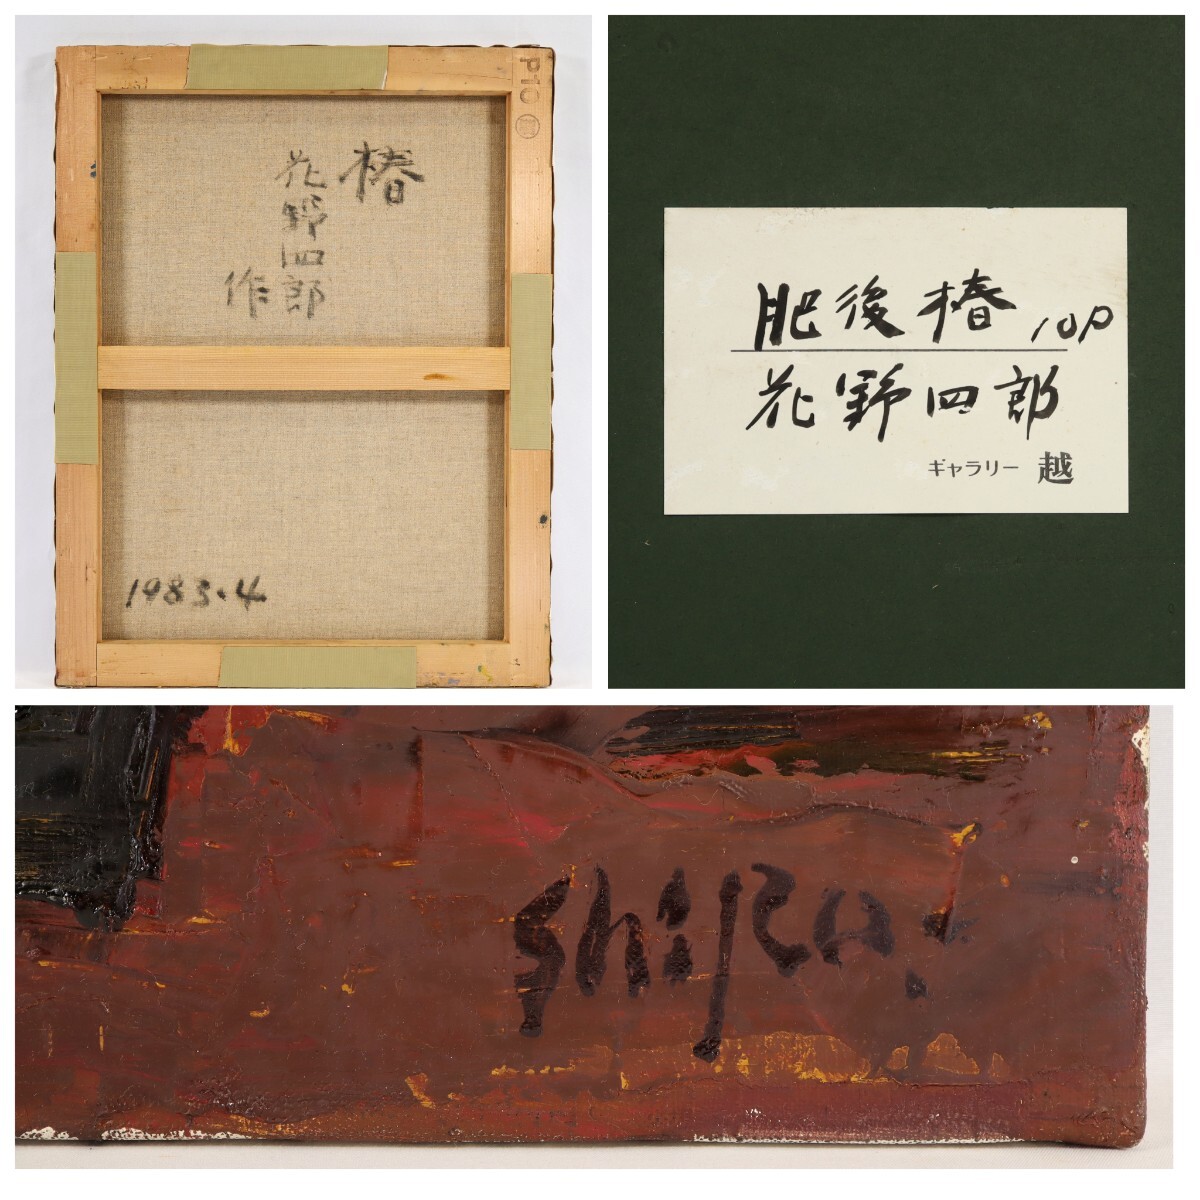 P10
椿
花野四郎
作
1983.4
肥後椿 10P
花野四郎
ギャラリー 越
Shiro.